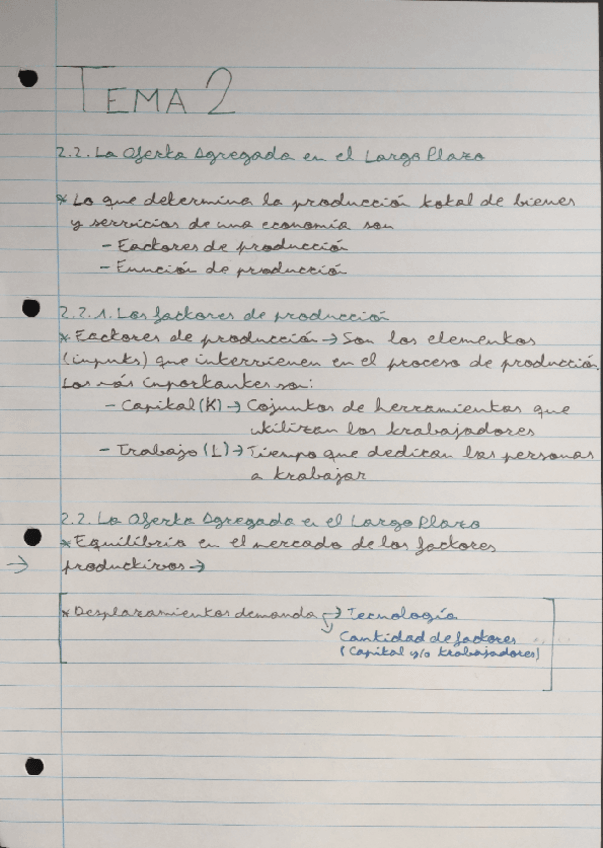 TEMA 2
2.2. La Oferta Agregada en el Largo Plazo
* Lo que determina la producción total de bienes
y servicios de una economía son
- Factores de producción
- Función de producción
2.2.1. Los factores de producción
* Factores de producción → Son los elementos
(inputs) que intervienen en el proceso de producción.
Los más importantes son:
- Capital (K) → Cojuntos de herramientas que
utilizan los trabajadores
- Trabajo (L) → Tiempo que dedican las personas
a trabajar
2.2. La Oferta Agregada en el Largo Plazo
* Equilibrio en el mercado de los factores
→ productivos →
* Desplazamientos demanda → Tecnología
Cantidad de factores
(Capital y/o trabajadores)